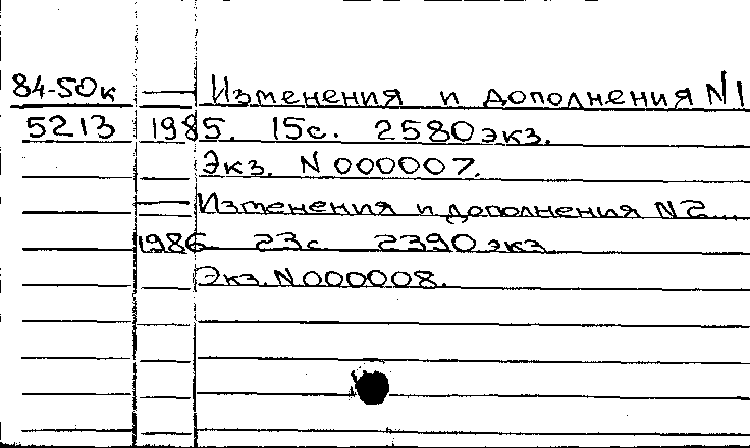 84-50к — Изменения и дополнения N1
5213 1985. 15с. 2580 экз.
Экз. N 000007.
— Изменения и дополнения N2...
1986. 23с. 2390 экз.
Экз. N000008.